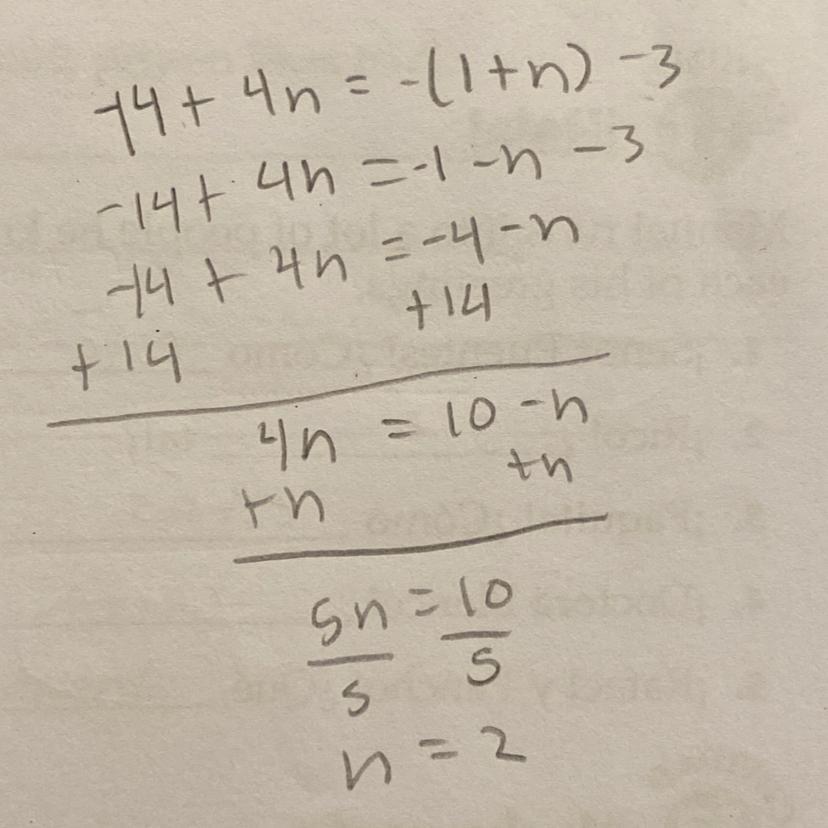 -14 + 4n = -(1+n) -3
-14 + 4n = -1 -n -3
-14 + 4n = -4 -n
+14 +14
4n = 10 -n
+n +n
5n = 10
5 5
n = 2